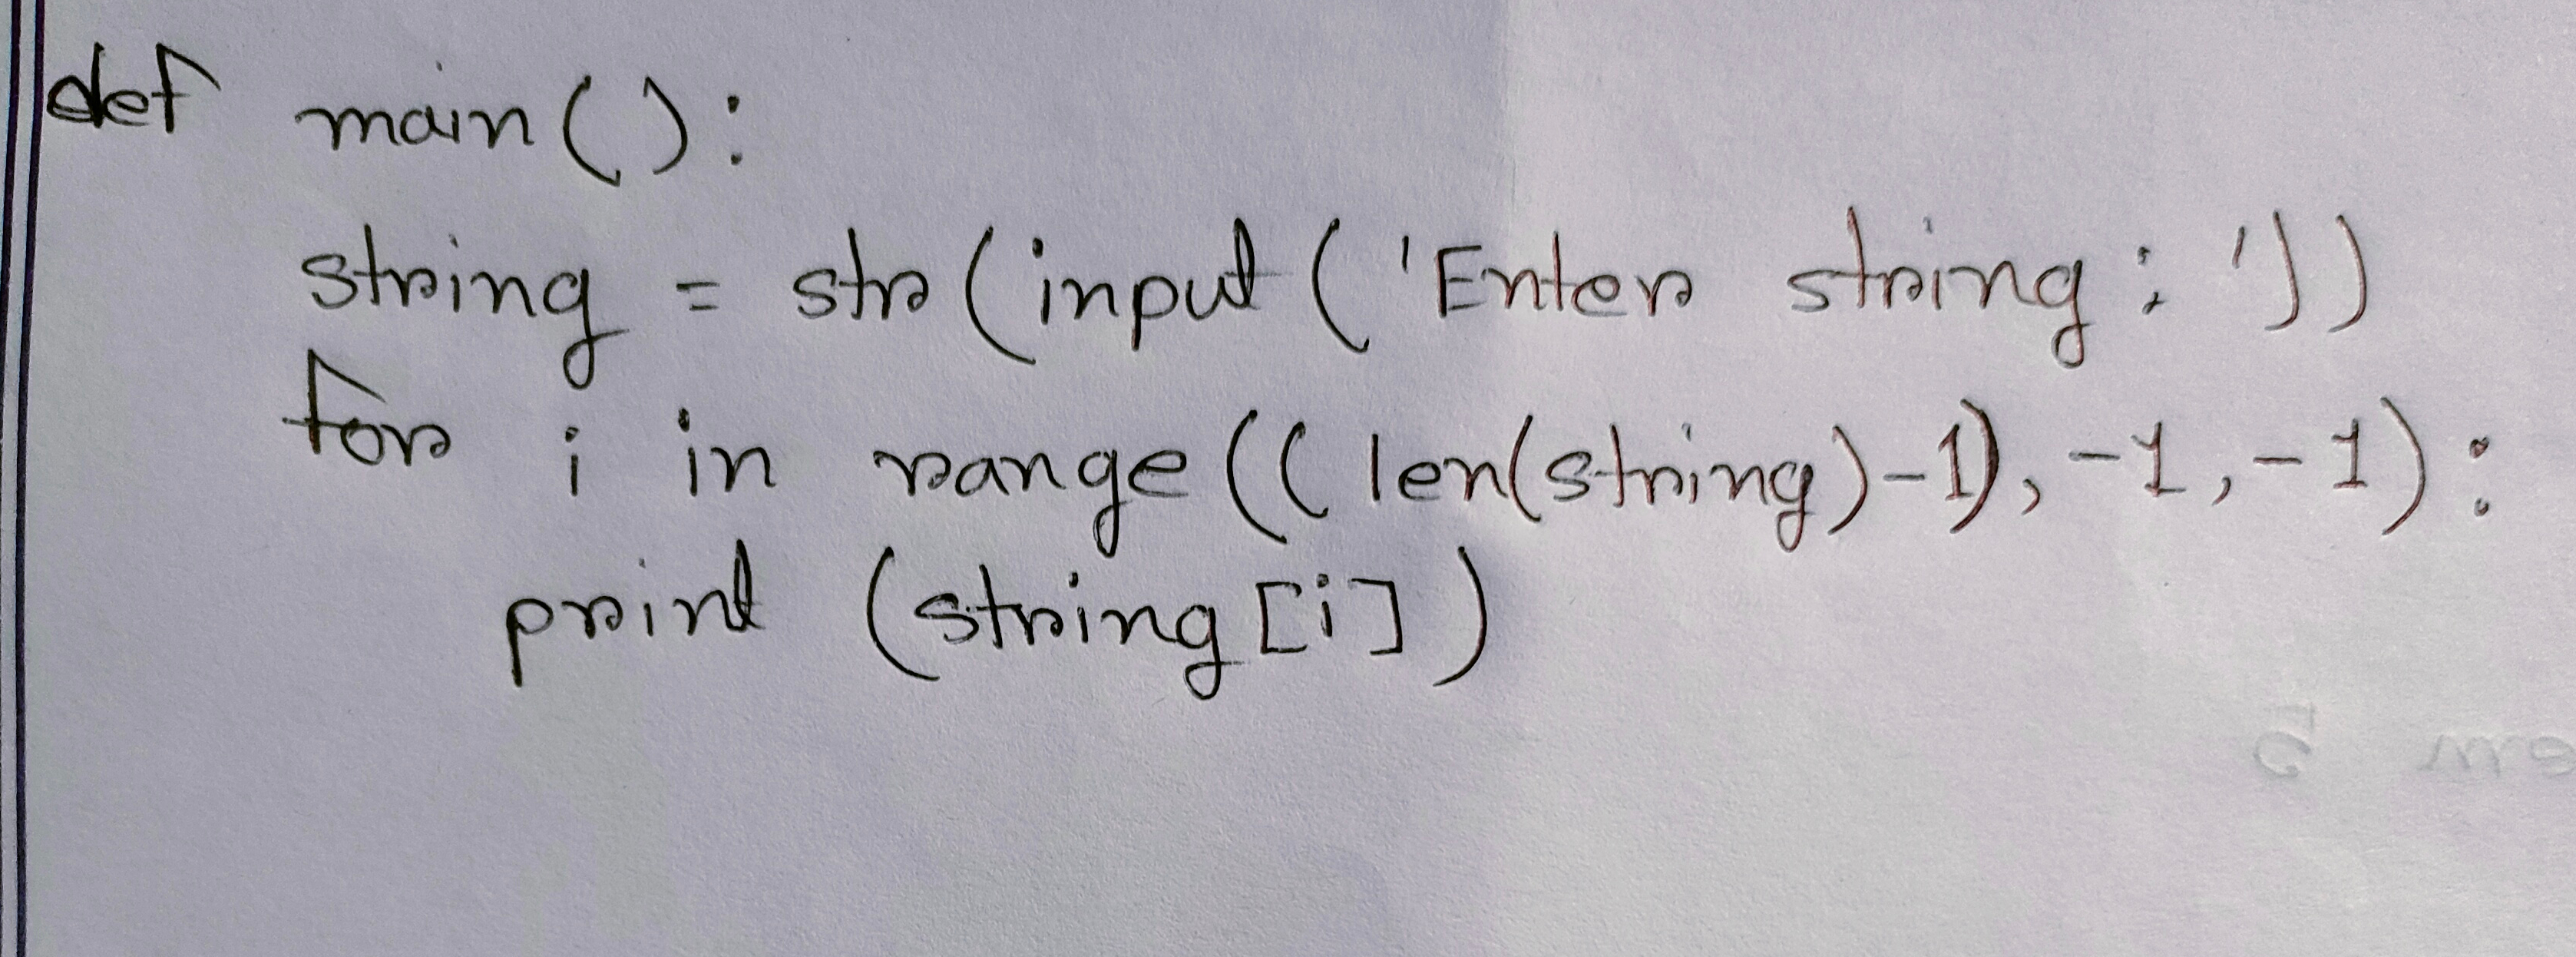 def main():
string = str(input('Enter string: '))
for i in range((len(string)-1),-1,-1):
print (string[i])